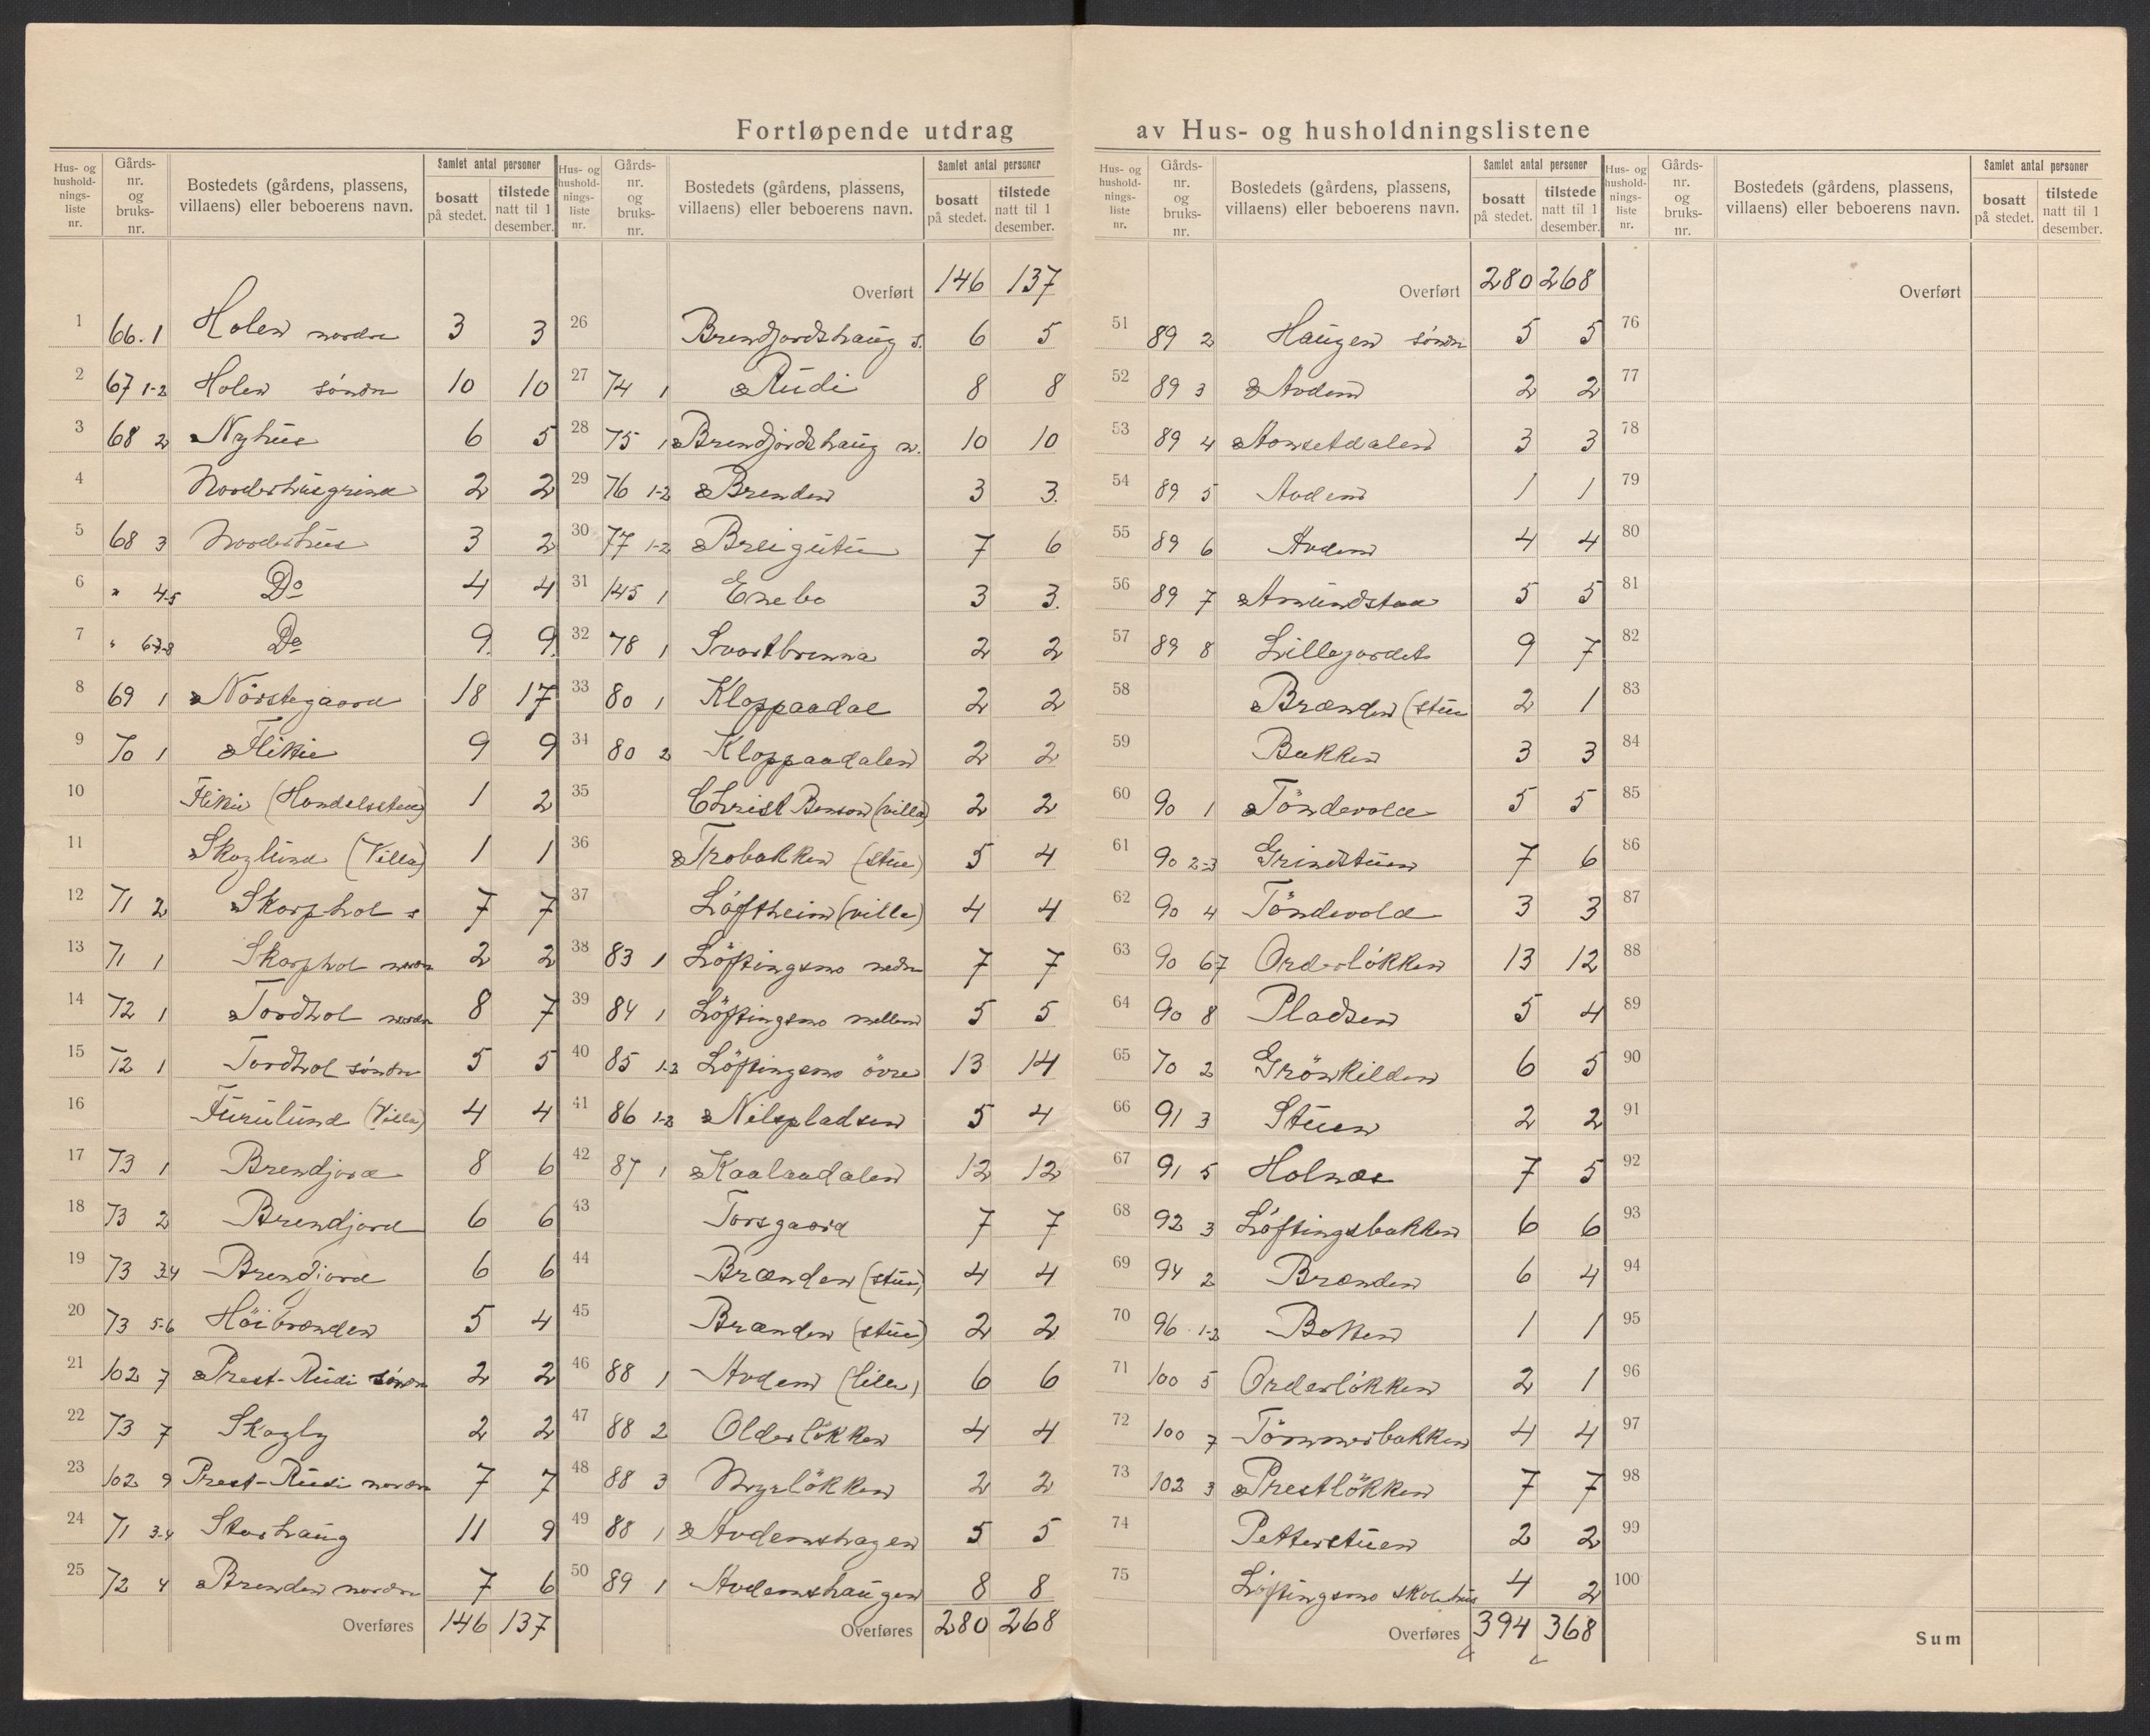 Fortløpende utdrag av Hus- og husholdningslistene
Hus- og husholdnings-liste nr. | Gårds-nr. og bruks-nr. | Bostedets (gårdens, plassens, villaens) eller beboerens navn. | Samlet antal personer bosatt på stedet. | tilstede natt til 1 desember.
1 66.1 Holen nordre 3 3
2 67 1-2 Holen söndre 10 10
3 68 2 Nyhus 6 5
4 Norderhusgrind 2 2
5 68 3 Norderhus 3 2
6 " 4-5 Do 4 4
7 " 6-7-8 Do 9 9
8 69 1 Nörstegaard 18 17
9 70 1 Flikie 9 9
10 Flikie (Handelssted) 1 2
11 Skoglund (Villa) 1 1
12 71 2 Skarphol s 7 7
13 71 1 Skarphol nordre 2 2
14 72 1 Tordhol nordre 8 7
15 72 1 Tordhol söndre 5 5
16 Furulund (Villa) 4 4
17 73 1 Brendjord 8 6
18 73 2 Brendjord 6 6
19 73 3-4 Brendjord 6 6
20 73 5-6 Höibrænden 5 4
21 102 7 Prest-Rudi söndre 2 2
22 73 7 Skogly 2 2
23 102 9 Prest-Rudi nordre 7 7
24 71 3-4 Storhaug 11 9
25 72 4 Brenden nordre 7 6
Overføres 146 137
Hus- og husholdnings-liste nr. | Gårds-nr. og bruks-nr. | Bostedets (gårdens, plassens, villaens) eller beboerens navn. | Samlet antal personer bosatt på stedet. | tilstede natt til 1 desember.
Overført 146 137
26 Brendjordshaug s. 6 5
27 74 1 Rudi 8 8
28 75 1 Brendjordshaug n. 10 10
29 76 1-2 Brenden 3 3
30 77 1-2 Breigutu 7 6
31 145 1 Enebo 3 3
32 78 1 Svartbrenna 2 2
33 80 1 Kloppaadal 2 2
34 80 2 Kloppaadalen 2 2
35 Christ Benson (villa) 2 2
36 Trobakken (stue) 5 4
37 Löftheim (villa) 4 4
38 83 1 Löftingsmo nedre 7 7
39 84 1 Löftingsmo mellem 5 5
40 85 1-2 Löftingsmo övre 13 14
41 86 1-2 Nilspladsen 5 4
42 87 1 Kaalaadalen 12 12
43 Torsgaard 7 7
44 Brænden (stue) 4 4
45 Brænden (stue) 2 2
46 88 1 Avdem (lille) 6 6
47 88 2 Olderlökken 4 4
48 88 3 Myrlökken 2 2
49 88 1 Avdemshagen 5 5
50 89 1 Avdemshaugen 8 8
Overføres 280 268
Hus- og husholdnings-liste nr. | Gårds-nr. og bruks-nr. | Bostedets (gårdens, plassens, villaens) eller beboerens navn. | Samlet antal personer bosatt på stedet. | tilstede natt til 1 desember.
Overført 280 268
51 89 2 Haugen söndre 5 5
52 89 3 Avdem 2 2
53 89 4 Aonsetdalen 3 3
54 89 5 Avdem 1 1
55 89 6 Avdem 4 4
56 89 7 Amundstad 5 5
57 89 8 Lillejordet 9 7
58 Brænden (stue 2 1
59 Bakken 3 3
60 90 1 Töndevold 5 5
61 90 2-3 Grindstuen 7 6
62 90 4 Töndevold 3 3
63 90 6-7 Orderlökken 13 12
64 90 8 Pladsen 5 4
65 70 2 Grönkilden 6 5
66 91 3 Stuen 2 2
67 91 5 Holnæs 7 5
68 92 3 Löftingsbakken 6 6
69 94 2 Brænden 6 4
70 96 1-2 Botten 1 1
71 100 5 Orderlökken 2 1
72 100 7 Tömmerbakken 4 4
73 102 3 Prestlökken 7 7
74 Petterstuen 2 2
75 Löftingsmo skolehus 4 2
Overføres 394 368
Hus- og husholdnings-liste nr. | Gårds-nr. og bruks-nr. | Bostedets (gårdens, plassens, villaens) eller beboerens navn. | Samlet antal personer bosatt på stedet. | tilstede natt til 1 desember.
Overført
76
77
78
79
80
81
82
83
84
85
86
87
88
89
90
91
92
93
94
95
96
97
98
99
100
Sum